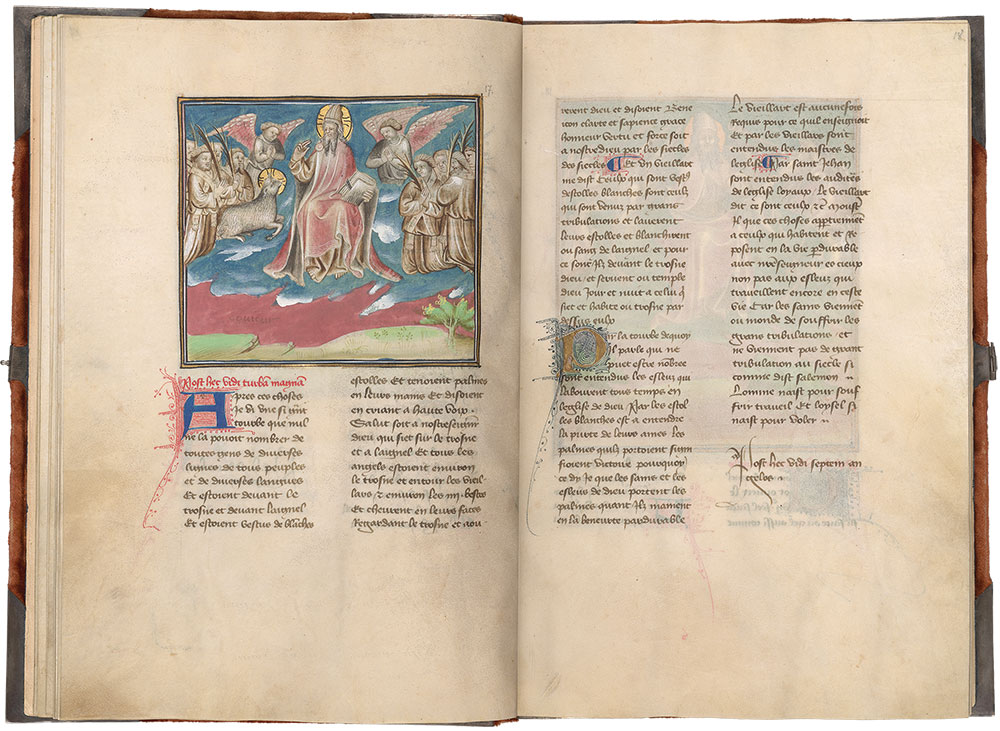 17
Post hec vidi turbã magnam
Apres ces choses
Je vi une si grant
tourbe que nul
ne la povoit nombrer de
toutes gens de diverses
lignies de tous peuples
et de diverses langues
Et estoient devant le
trosne et devant laignel
Et estoient vestus de blãches
estolles Et tenoient palmes
en leurs mains Et disoient
en criant a haute voix
Salut soit a nostre
dieu qui siet sur le trosne
et a laignel Et tous les
angels estoient environ
le trosne et entour les vieil
lars et environ les iiii bestes
Et cheurent en leurs faces
Regardant le trosne et aou
18
rerent dieu et disoient Bene
icon clarte et sapience grace
honneur vertu et force soit
a nostre dieu par les siecles
des siecles Et un vieillart
me dist Ceulx qui sont vest
destolles blanches sont ceulx
qui sont venus par grans
tribulations et laverent
leurs estolles et blanchirent
ou sang de laignel et pour
ce sont ilz devant le trosne
dieu et servent ou temple
dieu Jour et nuit a celui q̃
siet et habite ou trosne par
dessus eulx
Par la tourbe de quoy
il parle qui ne
puet estre nõbree
sont entendus les esleux qui
labourent tous temps en
leglise de dieu Par les estol
les blanches est a entendre
la purte de leurs ames Les
palmes quilz portoient signi
fioient victoire pourquoy
ce dy Je que les sains et les
esleus de dieu portent les
palmes quant ilz mainent
en la beneuree pardurable
Le vieillart est aucunefois
requis pour ce quil enseignoit
Et par les vieillars sont
entendus les maistres de
leglise Par saint Jehan
sont entendus les audites
de leglise loyaux Le vieillart
dit ce sont ceulx &c adjoust
il que ces choses appartiennent
a ceulx qui habitent et re
posent en la vie p̱durable
avec nr̃eseigneur es cieux
non pas aux esleuz qui
travaillent encore en ceste
vie Car les sains viennent
ou monde de souffrir les
grans tribulations et
ne viennent pas de grant
tribulation au siecle si
comme dist salemon
Lomme naist pour souf
frir travail Et loysel si
naist pour voler
Post hec vidi septem an
gelos